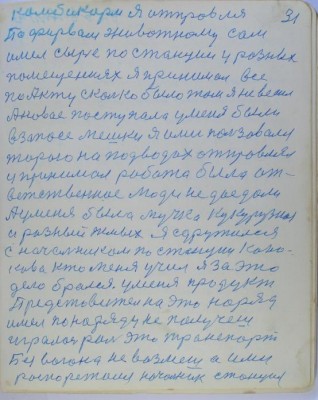 комбикорм я отправля 31
Под фирвам животному сам
имел сырье по станции у разных
помещениях я принимал все
по Акту сколко было там я не весил
А новае поступала у меня были
в запасе мешки я ими ползовалси
на подводах отправлял
и принимал работа была от-
ветственное люди не даедали
А у меня была мука кукуруза
и разный жмых я сдружился
с началником по станции
кто меня учил я за это
дело брался. у меня продукт
на это наряд
имел по наряду не получеш
играло рол это транспорт
Бу вагона не возмеш а ими
распорежался началник станции